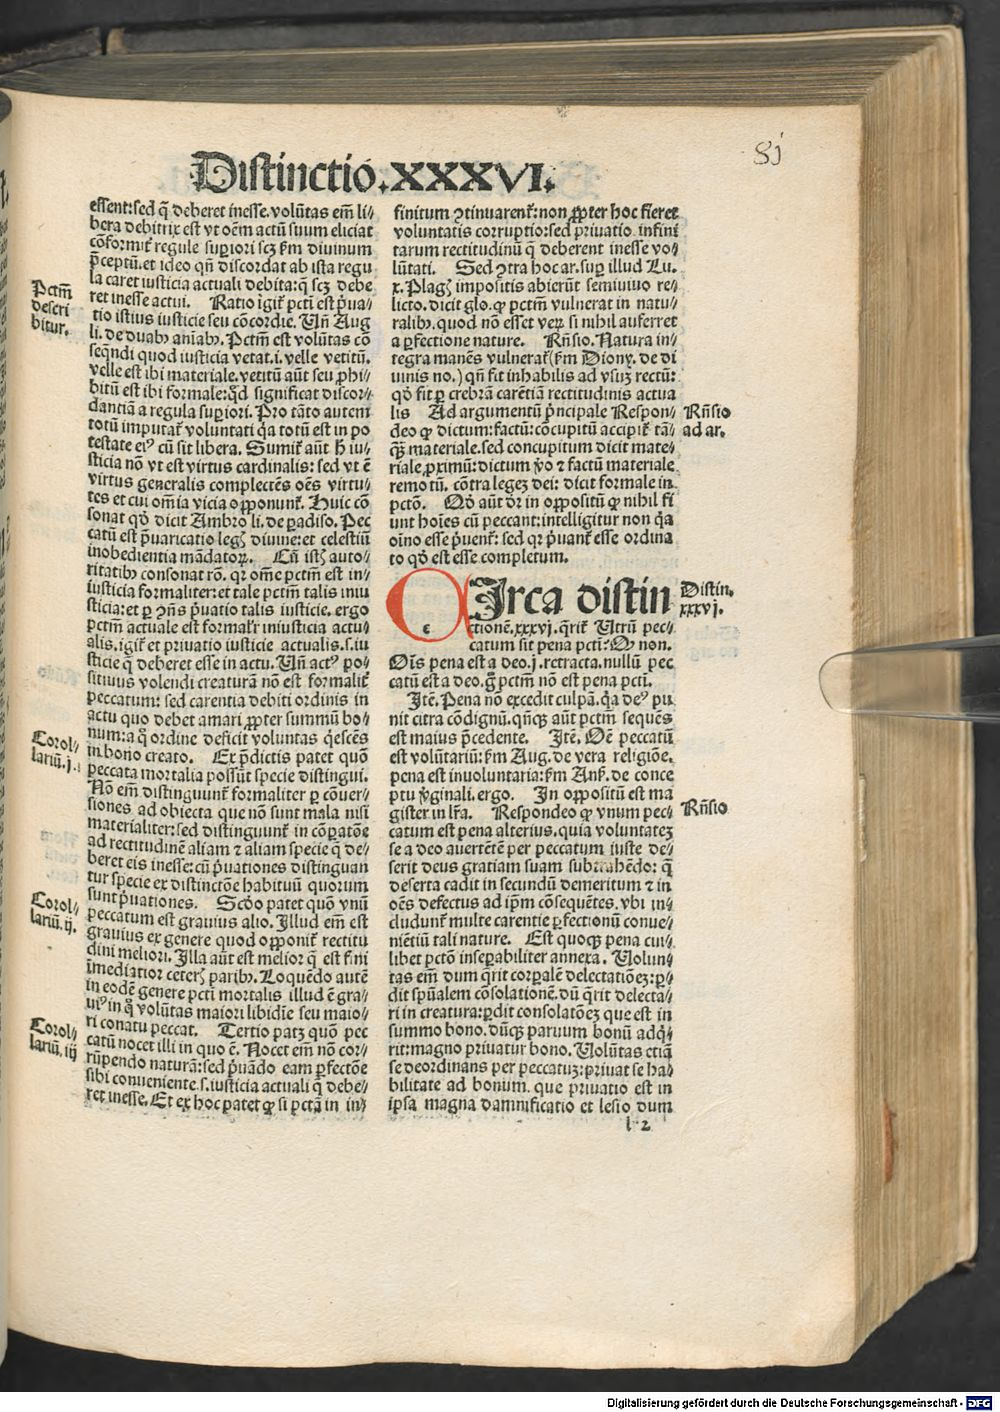 81
Distinctio.XXXVI.
essent:sed q̄ deberet inesse.volūtas em̄ li⸗
bera debitrix est vt oēm actū suum eliciat
cōformit̄ regule supiori scꝫ ẜm diuinum
p̄ceptū.et ideo qn̄ discordat ab ista regu
la caret iusticia actuali debita:q̄ scꝫ debe
ret inesse actui. Ratio igit̄ pcti est p̄ua⸗
tio istius iusticie seu cōcordie. Un̄ Aug
li.de duabꝰ aīabꝰ.Pctm̄ est volūtas cō
seqn̄di quod iusticia vetat.i.velle vetitū.
velle est ibi materiale.vetitū aūt seu ꝓhi⸗
bitū est ibi formale:qd̄ significat discor⸗
dantiā a regula supiori.Pro tāto autem
totū imputat̄ voluntati q̄a totū est in po
testate eiꝰ cū sit libera. Sumit̄ aūt h̄ iu⸗
sticia nō vt est virtus cardinalis: sed vt ē
virtus generalis complectēs oēs virtu⸗
tes et cui om̄ia vicia opponunt̄. Huic cō
sonat qd̄ dicit Ambro li.de ꝑadiso. Pec
catū est p̄uaricatio legꝭ diuine:et celestiū
inobedientia mādatoꝝ. Cū istꝭ auto⸗
ritatibꝰ consonat rō. qꝛ om̄e pctm̄ est in⸗
iusticia formaliter:et tale pctm̄ talis iniu
sticia:et ꝑ ꝯn̄s p̄uatio talis iusticie. ergo
pctm̄ actuale est formalr̄ iniusticia actu⸗
alis.igit̄ et priuatio iusticie actualis.s.iu
sticie q̄ deberet esse in actu. Un̄ actꝰ po⸗
sitiuus volendi creaturā nō est formalit̄
peccatum: sed carentia debiti ordinis in
actu quo debet amari ꝓpter summū bo⸗
num:a q̄ ordine deficit voluntas q̄escēs
in bono creato. Ex p̄dictis patet quō
peccata mortalia possūt specie distingui.
Nō em̄ distinguunt̄ formaliter ꝑ cōuer⸗
siones ad obiecta que nō sunt mala nisi
materialiter:sed distinguunt̄ in cōꝑatōe
ad rectitudinē aliam ⁊ aliam specie q̄ de⸗
beret eis inesse:cū p̄uationes distinguan
tur specie ex distinctōe habituū quorum
sunt p̄uationes. Scd̄o patet quō vnū
peccatum est grauius alio. Illud em̄ est
grauius ex genere quod opponit̄ rectitu
dini meliori.Illa aūt est melior q̄ est fini
īmediatior ceterꝭ paribꝰ.Loquēdo autē
in eodē genere pcti mortalis illud ē gra⸗
uiꝰ in q̄ volūtas maiori libidīe seu maio⸗
ri conatu peccat. Tertio patꝫ quō pec
catū nocet illi in quo ē. Nocet em̄ nō cor⸗
rūpendo naturā:sed p̄uādo eam ꝑfectōe
sibi conueniente.s.iusticia actuali q̄ debe⸗
ret inesse. Et ex hoc patet ꝙ si pctā in in⸗
Pctm̄
descri
bitur.
Corol⸗
lariū.j.
Corol⸗
lariū.ij.
Corol⸗
lariū.iij
finitum ꝯtinuarent̄:non ꝓpter hoc fieret
voluntatis corruptio:sed priuatio infini
tarum rectitudinū q̄ deberent inesse vo⸗
lūtati. Sed ꝯtra hoc ar.sup illud Lu.
x. Plagꝭ impositis abierūt semiuiuo re⸗
licto.dicit glo.ꝙ pctm̄ vulnerat in natu⸗
ralibꝰ.quod nō esset veꝝ si nihil auferret
a ꝑfectione nature. Rn̄sio. Natura in⸗
tegra manēs vulnerat̄(ẜm Dionyꝫ.de di
uinis no.) qn̄ fit inhabilis ad vsuꝫ rectū:
qd̄ fit ꝑ crebrā carētiā rectitudinis actua
lis Ad argumentū p̄ncipale Respon⸗
deo ꝙ dictum:factū:cōcupitū accipit̄ tā⸗
qꝫ materiale.sed concupitum dicit mate⸗
riale ꝓximū:dictum v̄o ⁊ factū materiale
remotū. cōtra legeꝫ dei: dicit formale in
pctō. Qd̄ aūt dr̄ in oppositū ꝙ nihil fi
unt hoīes cū peccant:intelligitur non q̄a
oīno esse p̄uent̄: sed qꝛ p̄uant̄ esse ordina
to qd̄ est esse completum.
Irca distin
c
ctionē.xxxvj.q̄rit̄ Utrū pec⸗
catum sit pena pcti? ꝙ non.
Oīs pena est a deo.j.retracta.nullū pec
catū est a deo.g̊ pctm̄ nō est pena pcti.
Itē. Pena nō excedit culpā.q̄a deꝰ pu
nit citra cōdignū.qn̄qꝫ aūt pctm̄ sequēs
est maius p̄cedente. Itē. Oē peccatū
est volūtariū:ẜm Aug.de vera religiōe.
pena est inuoluntaria:ẜm Anẜ. de conce
ptu v̄ginali.ergo. In oppositū est ma
gister in lr̄a. Respondeo ꝙ vnum pec⸗
catum est pena alterius.quia voluntateꝫ
se a deo auertētē per peccatum iuste de⸗
serit deus gratiam suam subtrahēdo: q̄
deserta cadit in secundū demeritum ⁊ in
oēs defectus ad ip̄m cōsequētes.vbi in⸗
cludunt̄ multe carentie ꝑfectionū conue⸗
niētiū tali nature. Est quoqꝫ pena cui⸗
libet pctō inseꝑabiliter annexa. Uolun⸗
tas em̄ dum q̄rit corꝑalē delectatiōeꝫ:ꝑ⸗
dit spūalem cōsolationē.dū q̄rit delecta⸗
ri in creatura:ꝑdit consolatōeꝫ que est in
summo bono.dūqꝫ paruum bonū adq̄⸗
rit:magno priuatur bono. Uolūtas etiā
se deordinans per peccatuꝫ:priuat se ha⸗
bilitate ad bonum. que priuatio est in
ipsa magna damnificatio et lesio dum
l 2
Rn̄sio
ad ar.
Distin.
xxxvj.
Rn̄sio
Digitalisierung gefördert durch die Deutsche Forschungsgemeinschaft - DFG